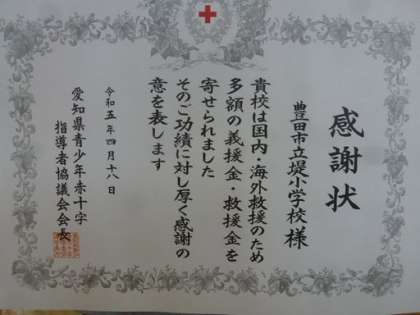 感謝状
豊田市立堤小学校 様
貴校は国内・海外救援のため
多額の義援金・救援金を
寄せられました
そのご功績に対し厚く感謝の
意を表します
令和五年四月十八日
愛知県青少年赤十字
指導者協議会会長